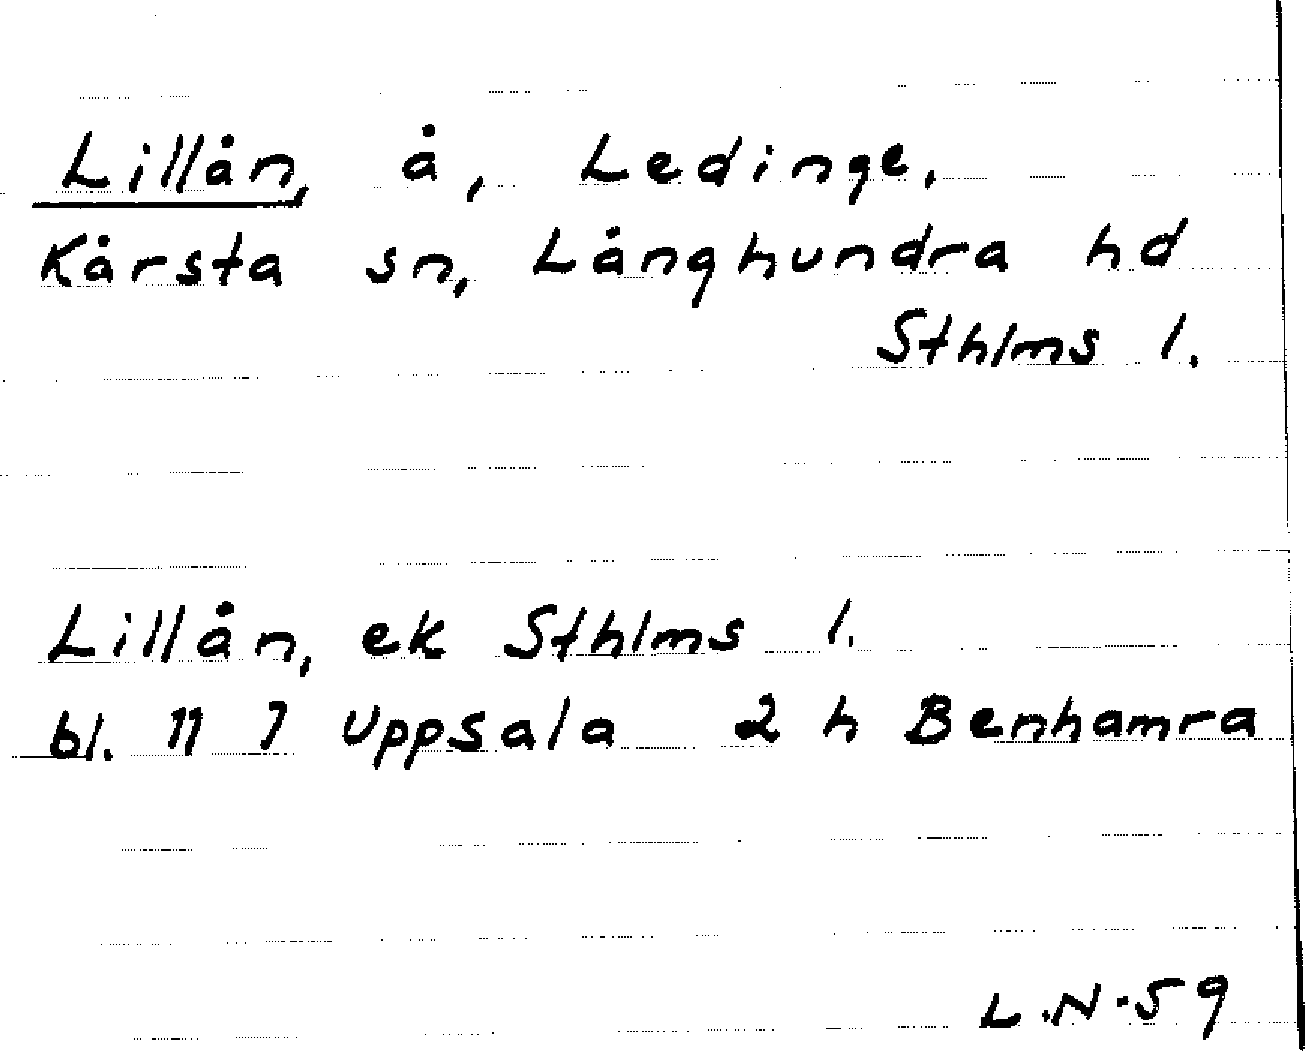 Lillån, å, Ledinge,
Kårsta sn, Långhundra hd
Sthlms l.
Lillån, ek Sthlms l.
bl. 11 7 Uppsala 2 h Benhamra
L.N.59